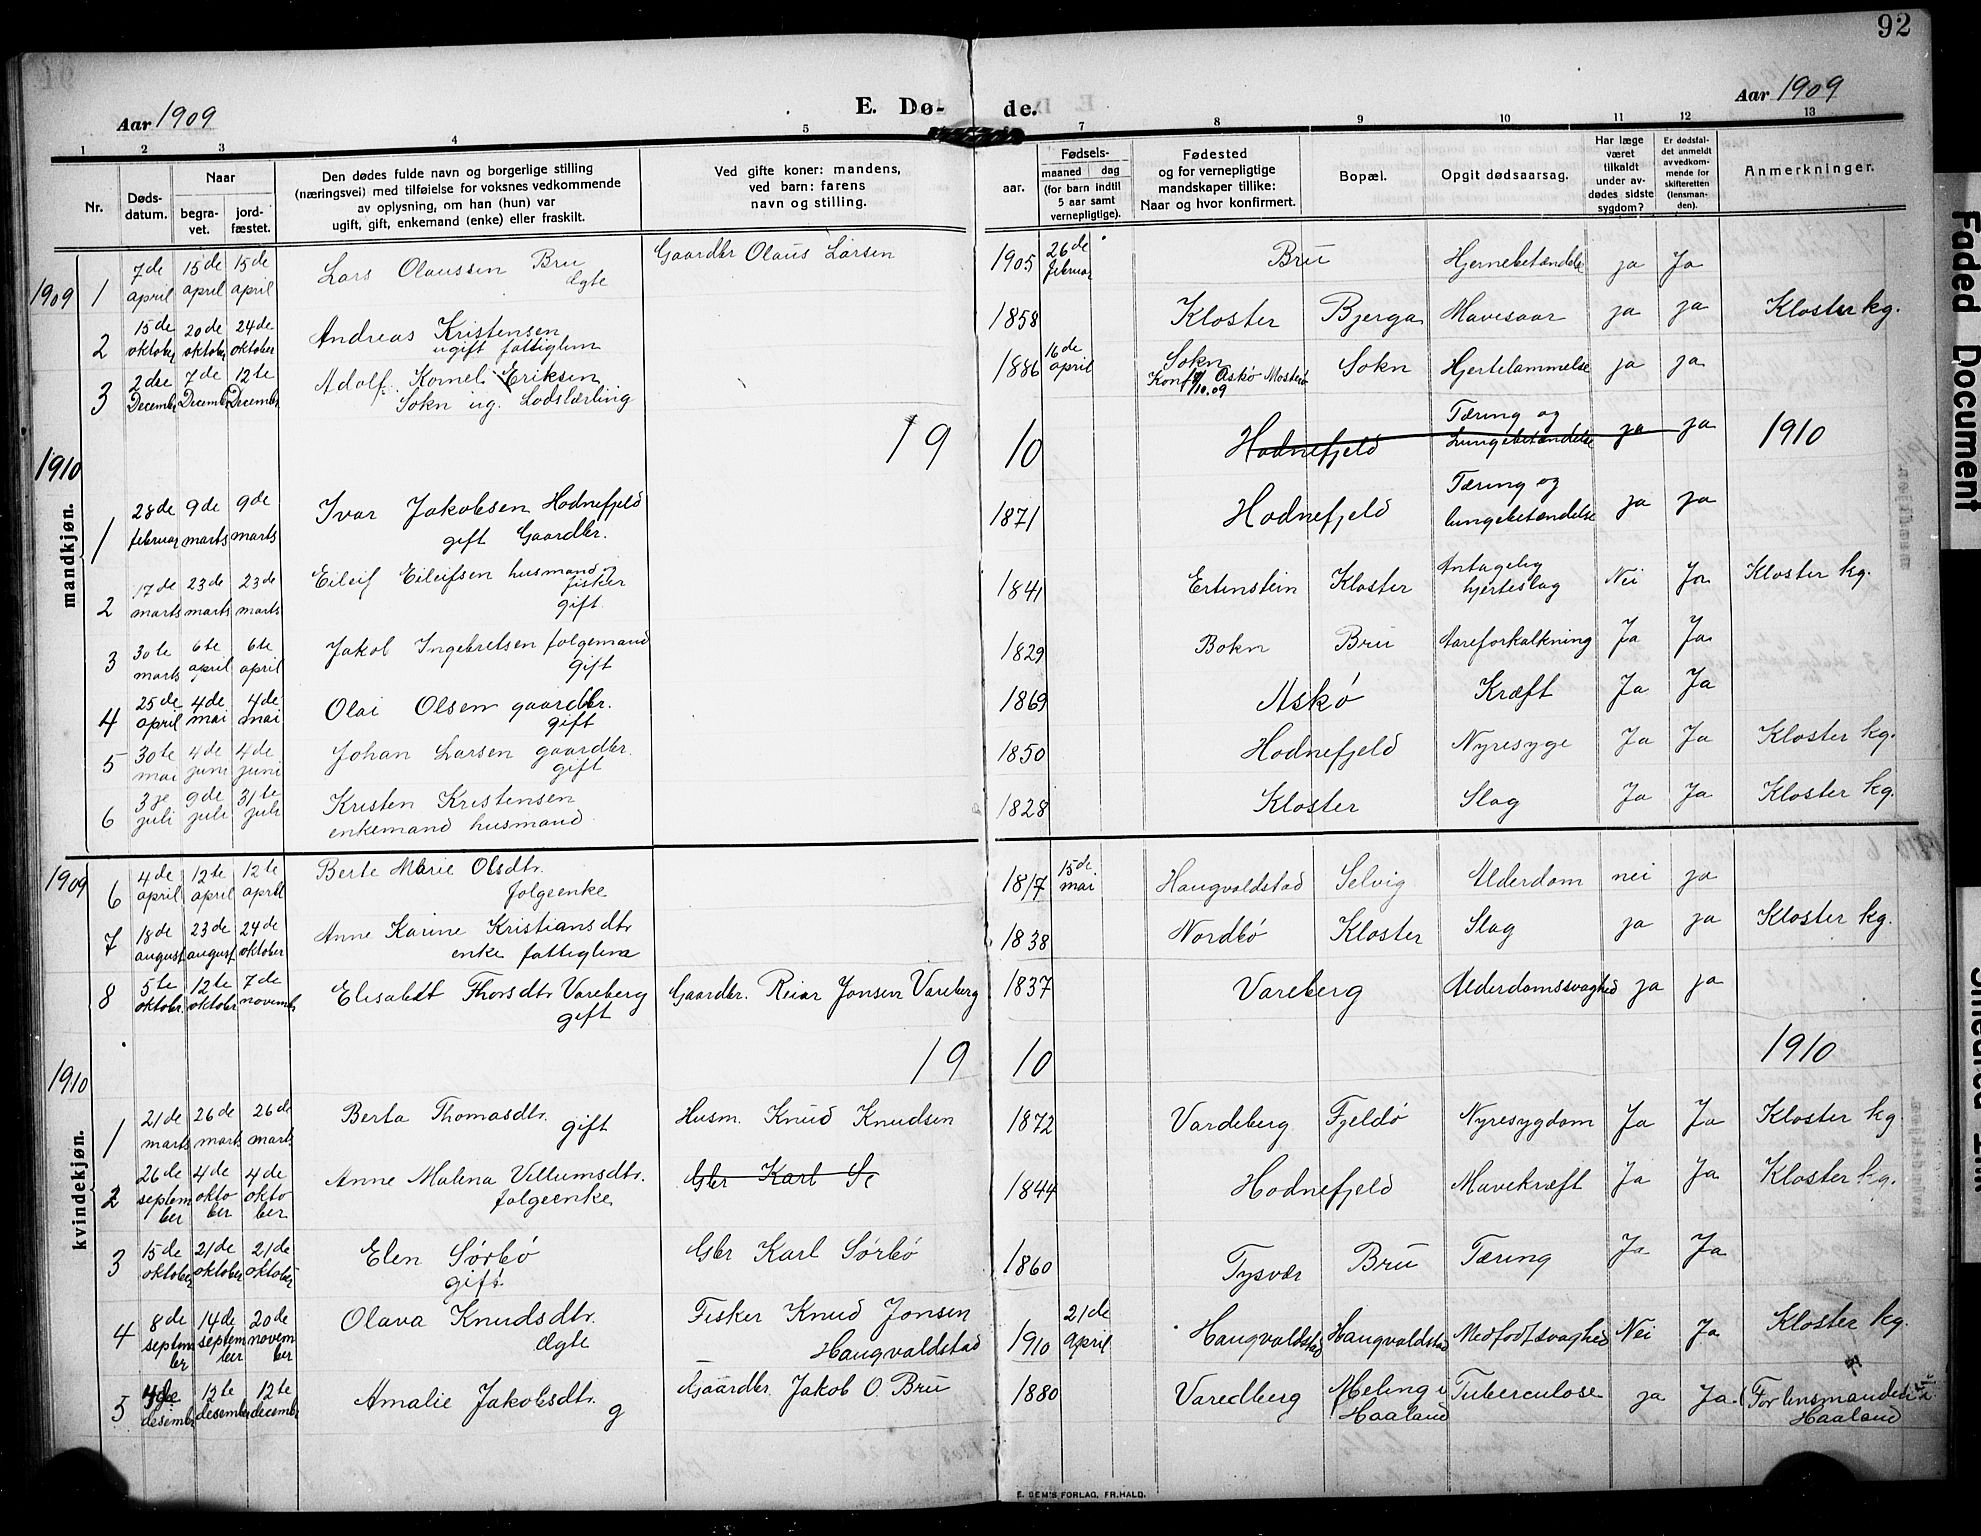 92
Aar 1909
E. Dø-
de.
Aar 1909
1 2 3 4 5 7 8 9 10 11 12 13
Nr.
Døds-
datum.
Naar
begra-
vet.
jord-
fæstet.
Den dødes fulde navn og borgerlige stilling
(næringsvei) med tilføielse for voksnes vedkommende
av oplysning, om han (hun) var
ugift, gift, enkemand (enke) eller fraskilt.
Ved gifte koner: mandens,
ved barn: farens
navn og stilling.
Fødsels-
aar.
maaned dag
(for barn indtil
5 aar samt
vernepligtige).
Fødested
og for vernepligtige
mandskaper tillike:
Naar og hvor konfirmert.
Bopæl.
Opgit dødsaarsag.
Har læge
været
tilkaldt
under av-
dødes sidste
sygdom?
Er dødsfal-
det anmeldt
av vedkom-
mende for
skifteretten
(lensman-
den).
Anmerkninger.
mandkjøn.
1909 1 7de april 15de april 15de april Lars Olaussen Bru Ægte Gaardbr Olaus Larsen 1905 26de februar Bru Hjernebetændelse ja Ja
2 15de oktober 20de oktober 24de oktober Andreas Kristensen ugift fattiglem 1858 Kloster Bjerga Mavesaar ja ja Kloster kg.
3 2den December 7de December 12te December Adolf Kornel. Eriksen Sokn ug. Lodslærling 1886 16de april Sokn Konf. Askø Mosterø Sokn Hjertelammelse ja ja
1910 1910 Hodnefjeld Tæring og Lungebetændelse ja ja 1910
1 28de februar 9de marts 9de marts Ivar Jakobsen Hodnefjeld gift Gaardbr. 1871 Hodnefjeld Tæring og lungebetændelse ja ja
2 17de marts 23de marts 23de marts Eileif Eileifsen husmand og fisker gift. 1841 Ertenstein Kloster Antagelig hjerteslag Nei Ja Kloster kg.
3 30te marts 6te april 6te april Jakob Ingebretsen folgemand gift 1829 Bokn Bru Aareforkalkning Ja Ja
4 25de april 4de mai 4de mai Olai Olsen gaardbr. gift 1869 Askø Kræft Ja Ja
5 30te mai 4de juni 4de juni Johan Larsen gaardbr. gift 1850 Hodnefjeld Nyresyge Ja Ja Kloster kg.
6 3je juli 9de juli 31te juli Kristen Kristensen enkemand husmand 1828 Kloster Slag Ja Ja Kloster kg.
kvindekjøn.
1909 6 4de april 12te april 12te april Berte Marie Olsdtr. folgeenke 1817 15de mai Haugvaldstad Selvig Alderdom nei ja
7 18de august 23de august 24de oktober Anne Karine Kristiansdtr enke fattiglem 1838 Nordbø Kloster Slag ja ja Kloster kg.
8 5te oktober 12te oktober 7de novembr Elisabet Thorsdtr Vareberg gift Gaardbr. Reiar Jonsen Vareberg 1837 Vareberg Alderdomssvaghed ja ja
1910 1910 1910
1 21de marts 26de marts 26de marts Berta Thomasdtr. gift Husm. Knud Knudsen 1872 Vardeberg Fjeldø Nyresygdom Ja Ja Kloster kg
2 26de september 4de oktober 4de oktober Anne Malena Villumsdtr. folgeenke Gbr Karl S 1844 Hodnefjeld Mavekræft Ja Ja Kloster kg.
3 15de oktober 21de oktober 21de oktober Elen Sørbø gift Gbr Karl Sørbø 1860 Tysvær Bru Tæring Ja Ja
4 8de september 14de september 20de november Olava Knudsdtr. Ægte Fisker Knud Jonsen Haugvaldstad 1910 21de April Haugvaldstad Haugvaldstad Medfødt svaghed Nei Ja Kloster kg.
5 desembr 12te desember 12te december Amalie Jakobsdtr. g Gaardbr. Jakob O. Bru 1880 Varedberg Meling i Haaland Tuberculose ja Ja. (For lensmanden i Haaland
E. SEM'S FORLAG, FR.HALD.
Faded Document